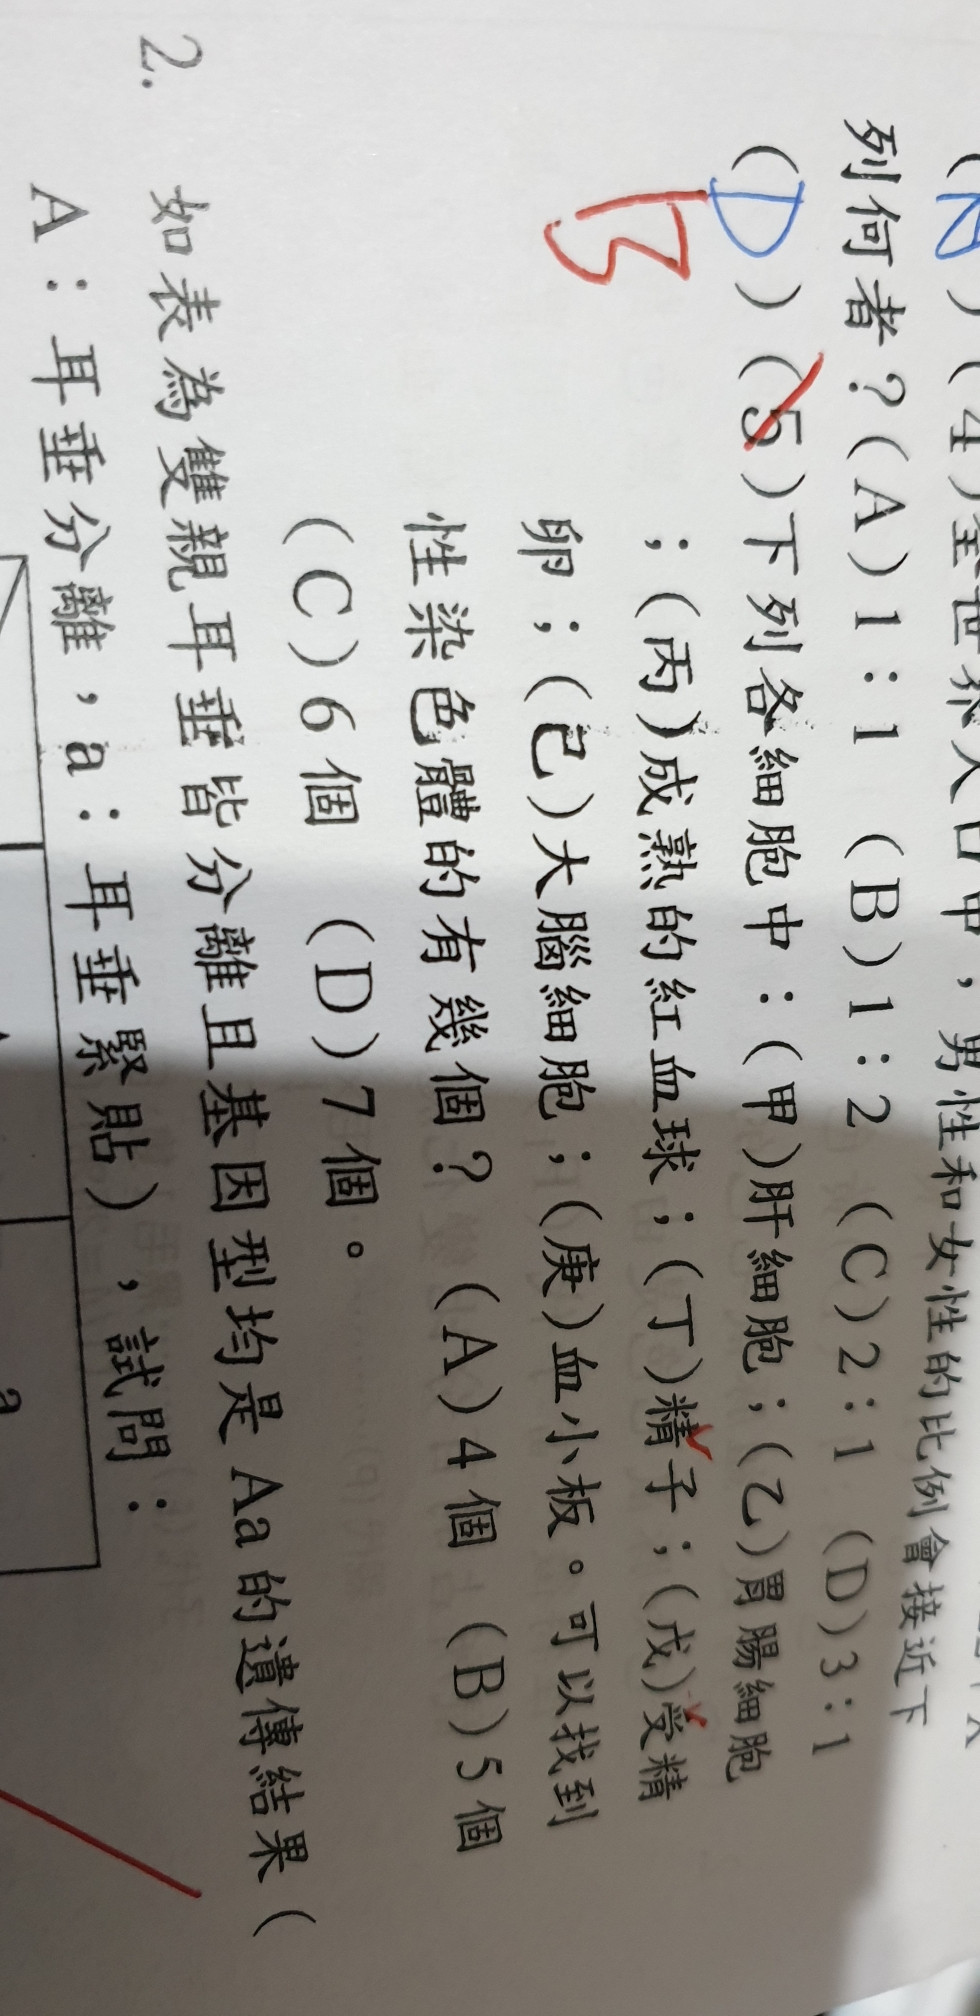 (A)(4)全世界人口中，男性和女性的比例會接近下
列何者？(A)1：1 (B)1：2 (C)2：1 (D)3：1
(D)(5)下列各細胞中：(甲)肝細胞；(乙)胃腸細胞
B
；(丙)成熟的紅血球；(丁)精子；(戊)受精
卵；(己)大腦細胞；(庚)血小板。可以找到
性染色體的有幾個？ (A)4個 (B)5個
(C)6個 (D)7個。
2. 如表為雙親耳垂皆分離且基因型均是Aa的遺傳結果（
A：耳垂分離，a：耳垂緊貼），試問：
a